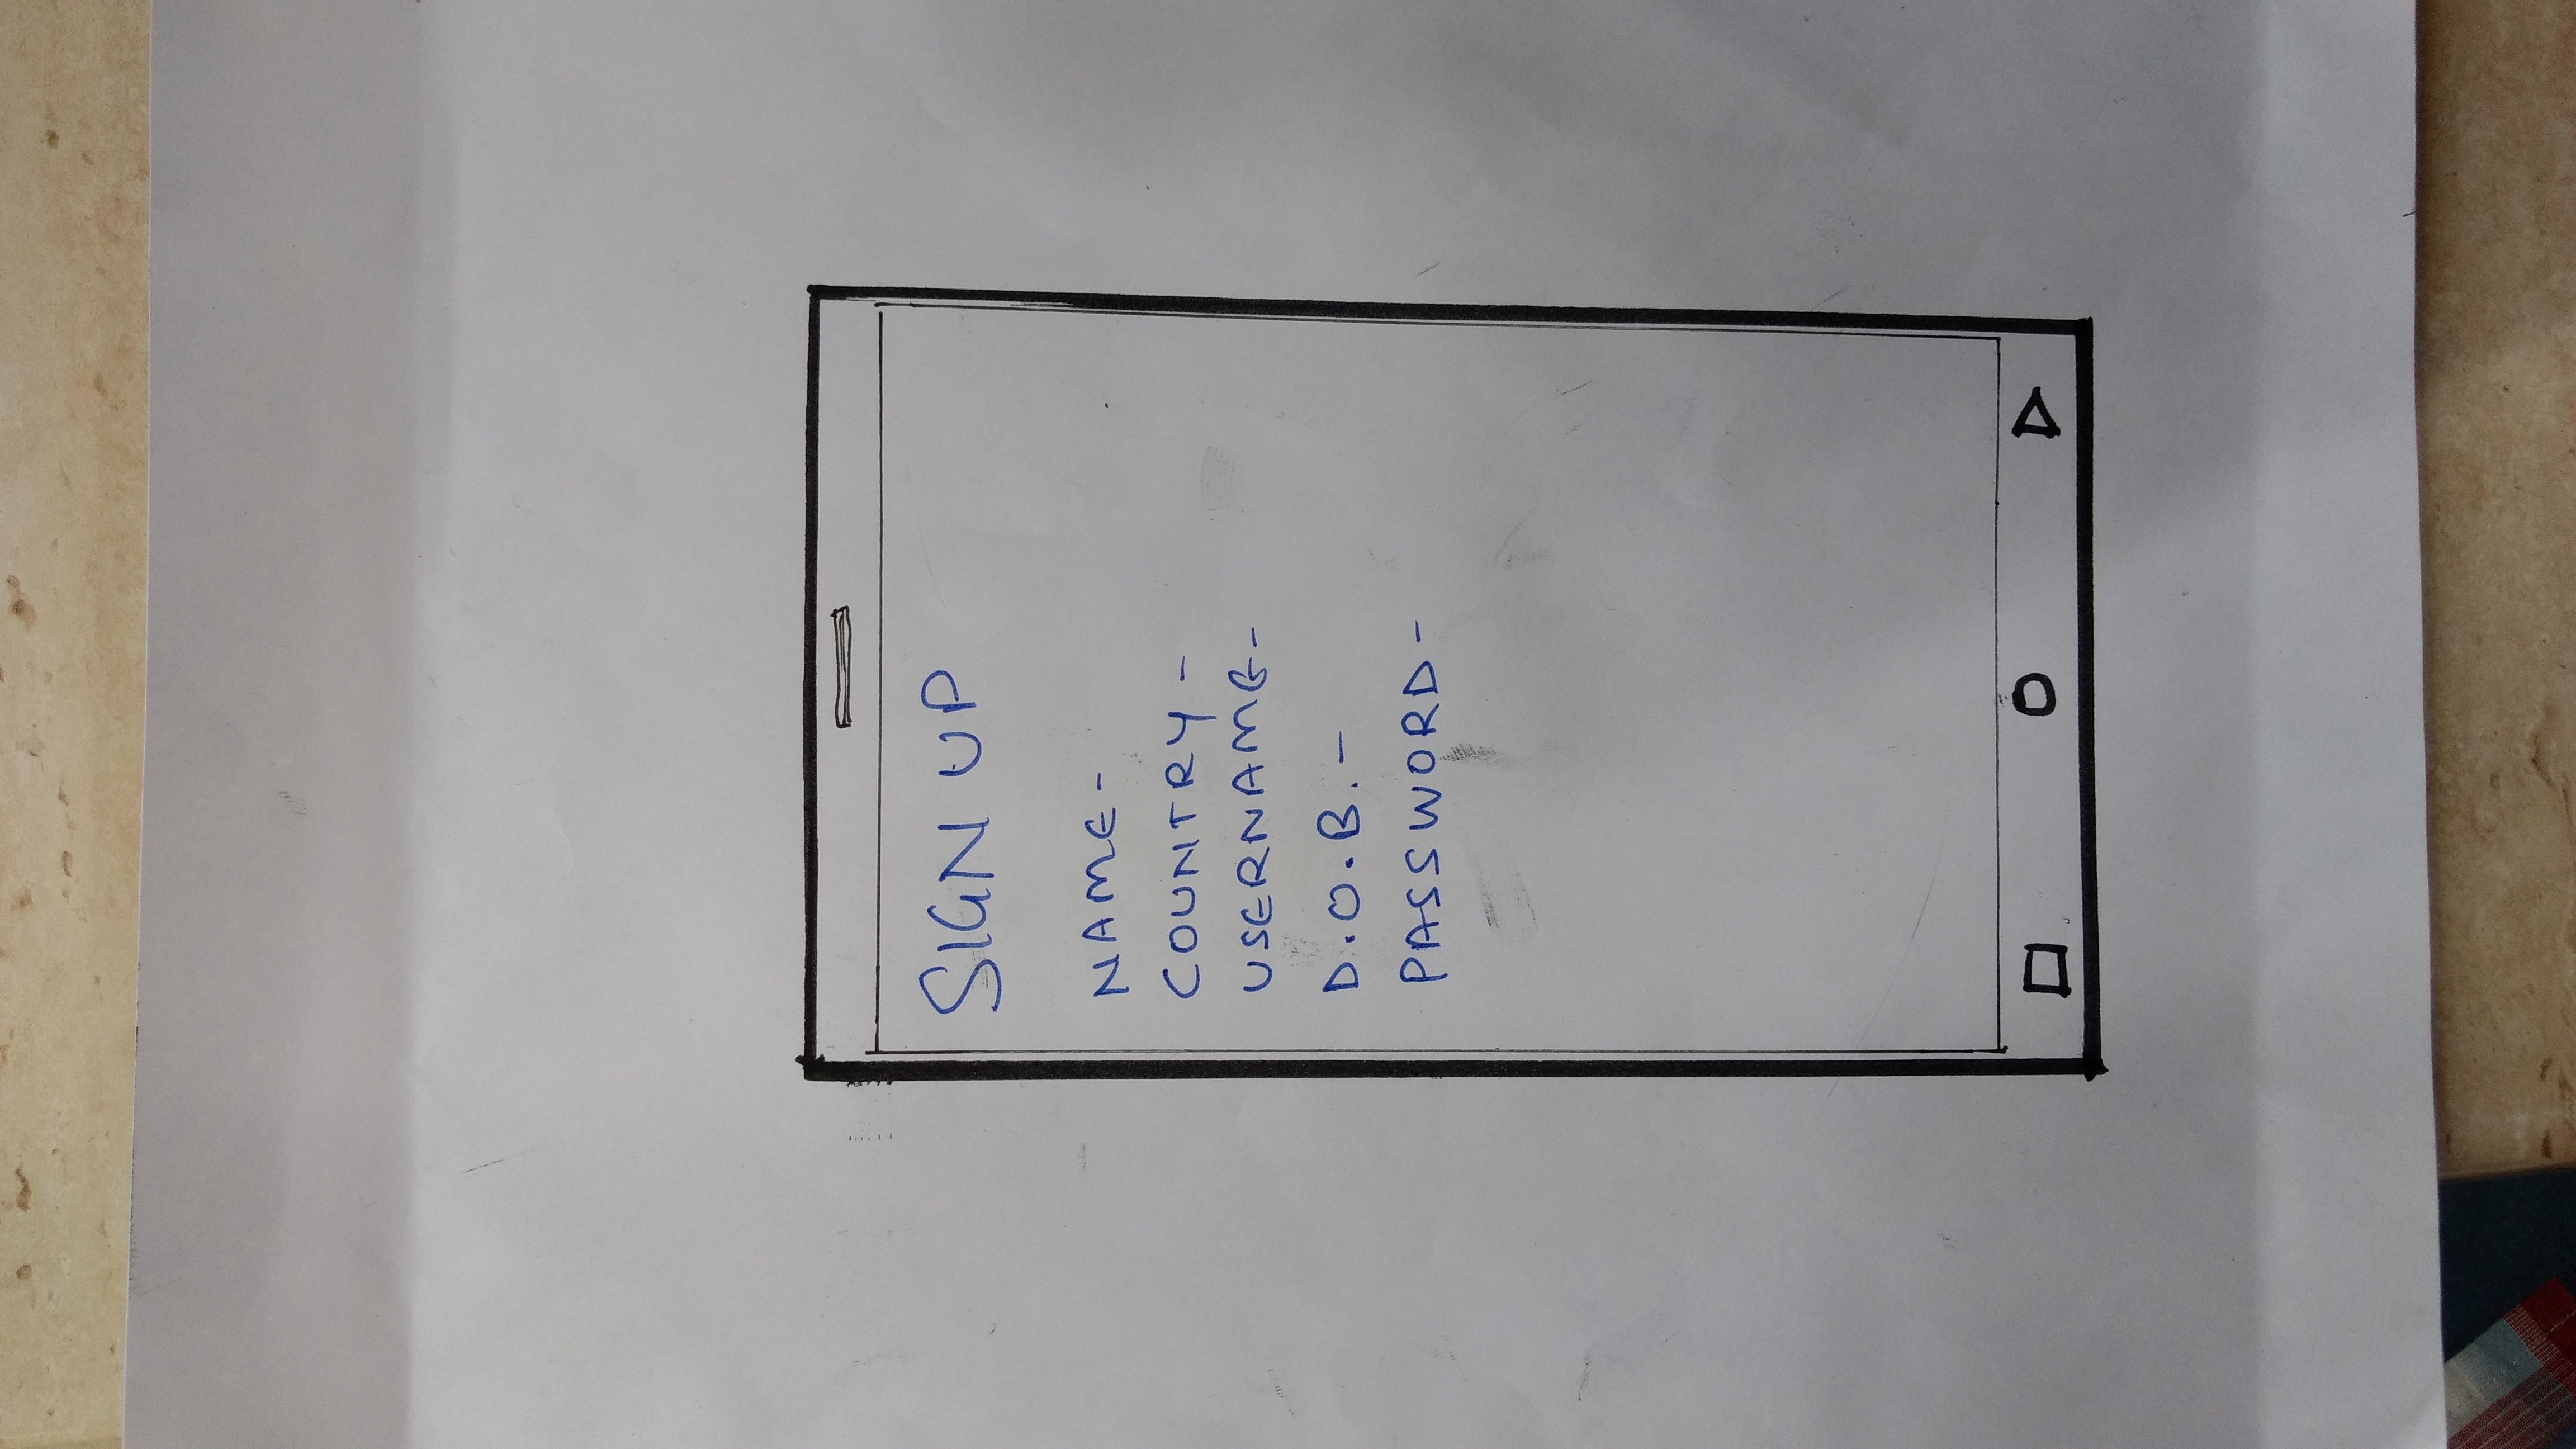 SIGN UP
NAME-
COUNTRY-
USERNAME-
D.O.B.-
PASSWORD-